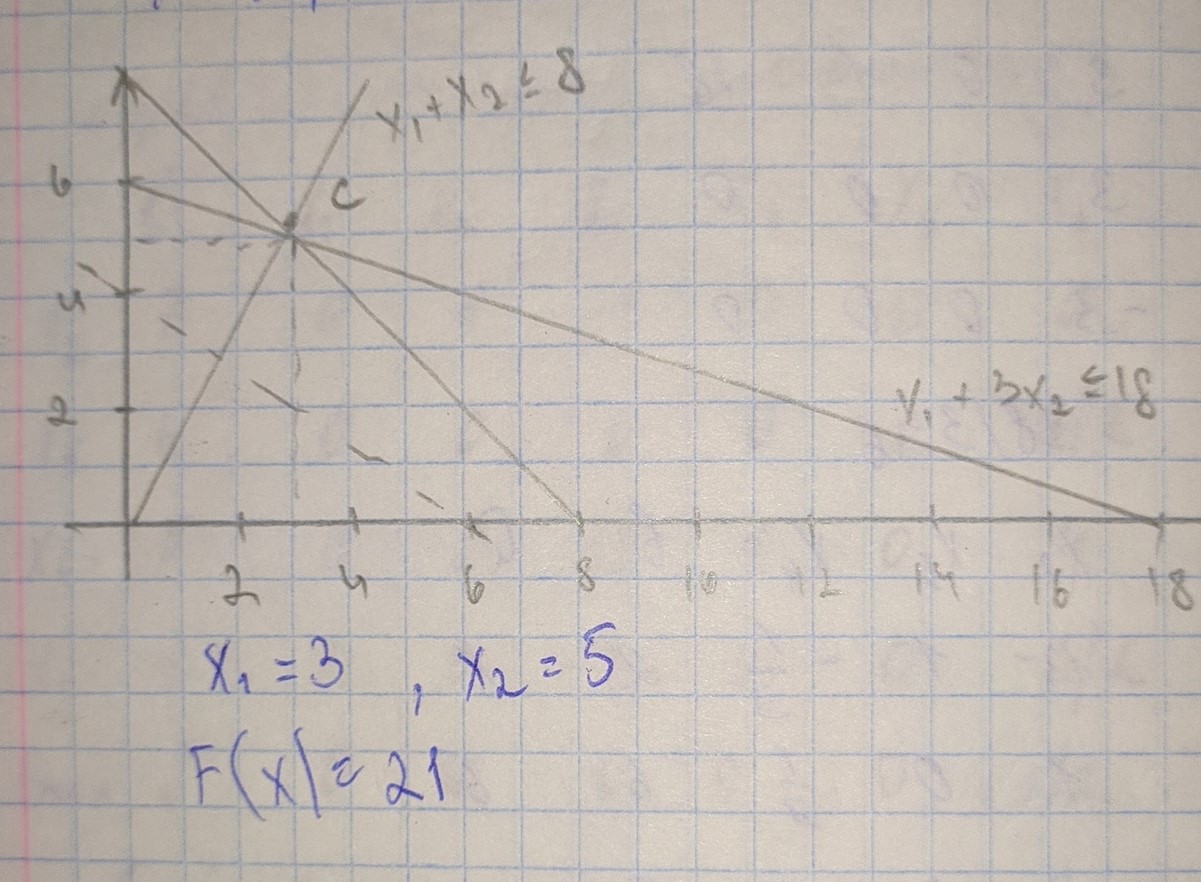 x₁ + x₂ ≤ 8
6
C
4
x₁ + 3x₂ ≤ 18
2
2 4 6 8 10 12 14 16 18
x₁ = 3 , x₂ = 5
F(x) = 21